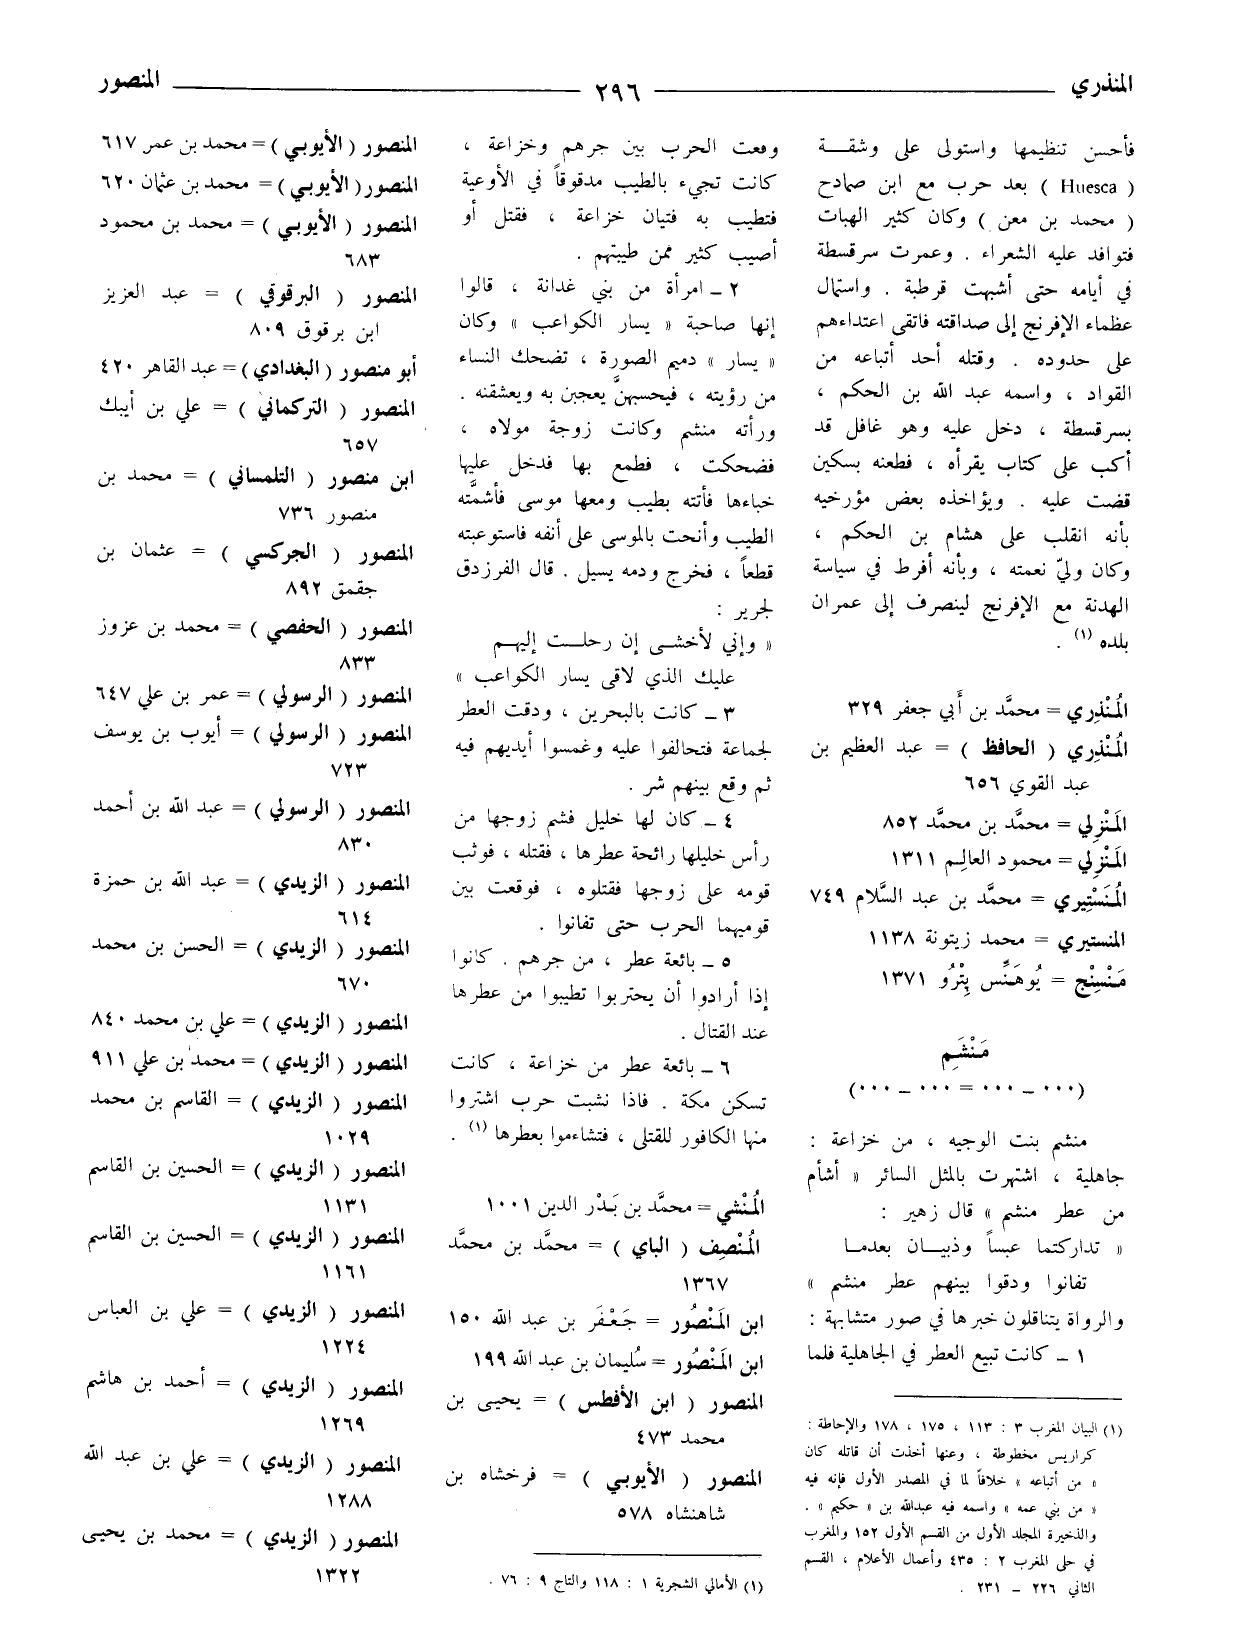 المنذري
٢٩٦
المنصور
فأحسن تنظيمها واستولى على وشقـــة
( Huesca ) بعد حرب مع ابن صمادح
( محمد بن معن ) وكان كثير الهبات
فتوافد عليه الشعراء . وعمرت سرقسطة
في أيامه حتى أشبهت قرطبة . واستمال
عظماء الإفرنج إلى صداقته فاتقى اعتداءهم
على حدوده . وقتله أحد أتباعه من
القواد ، واسمه عبد الله بن الحكم ،
بسرقسطة ، دخل عليه وهو غافل قد
أكب على كتاب يقرأه ، فطعنه بسكين
قضت عليه . ويؤاخذه بعض مؤرخيه
بأنه انقلب على هشام بن الحكم ،
وكان وليّ نعمته ، وبأنه أفرط في سياسة
الهدنة مع الإفرنج لينصرف إلى عمران
بلده (١) .
المُنْذِري = محمَّد بن أَبي جعفر ٣٢٩
المُنْذِري ( الحافظ ) = عبد العظيم بن
عبد القوي ٦٥٦
المَنْزِلي = محمَّد بن محمَّد ٨٥٢
المَنْزِلي = محمود العالِم ١٣١١
المُنَسْتِيري = محمَّد بن عبد السَّلام ٧٤٩
المنستيري = محمد زيتونة ١١٣٨
مَنْسِنْج = يُوهَنِّس پِتْرُو ١٣٧١
مَنْشَمِ
(٠٠٠ ــ ٠٠٠ = ٠٠٠ ــ ٠٠٠)
منشم بنت الوجيه ، من خزاعة :
جاهلية ، اشتهرت بالمثل السائر « أشأم
من عطر منشم » قال زهير :
« تداركتما عبساً وذبيــان بعدمــا
تفانوا ودقوا بينهم عطر منشم »
والرواة يتناقلون خبرها في صور متشابهة :
١ ــ كانت تبيع العطر في الجاهلية فلما
(١) البيان المغرب ٣ : ١١٣ ، ١٧٥ ، ١٧٨ والإحاطة :
كراريس مخطوطة ، وعنها أخذت أن قاتله كان
« من أتباعه » خلافاً لما في المصدر الأول فإنه فيه
« من بني عمه » واسمه فيه عبدالله بن « حكيم » .
والذخيرة المجلد الأول من القسم الأول ١٥٢ والمغرب
في حلى المغرب ٢ : ٤٣٥ وأعمال الأعلام ، القسم
الثاني ٢٢٦ ــ ٢٣١ .
وقعت الحرب بين جرهم وخزاعة ،
كانت تجيء بالطيب مدقوقاً في الأوعية
فتطيب به فتيان خزاعة ، فقتل أو
أصيب كثير ممن طيبتهم .
٢ ــ امرأة من بني غدانة ، قالوا
إنها صاحبة « يسار الكواعب » وكان
« يسار » دميم الصورة ، تضحك النساء
من رؤيته ، فيحسبهنَّ يعجبن به ويعشقنه .
ورأته منشم وكانت زوجة مولاه ،
فضحكت ، فطمع بها فدخل عليها
خباءها فأتته بطيب ومعها موسى فأشمَّته
الطيب وأنحت بالموسى على أنفه فاستوعبته
قطعاً ، فخرج ودمه يسيل . قال الفرزدق
لجرير :
« وإني لأخشــى إن رحلــت إليهــم
عليك الذي لاقى يسار الكواعب »
٣ ــ كانت بالبحرين ، ودقت العطر
لجماعة فتحالفوا عليه وغمسوا أيديهم فيه
ثم وقع بينهم شر .
٤ ــ كان لها خليل فشم زوجها من
رأس خليلها رائحة عطرها ، فقتله ، فوثب
قومه على زوجها فقتلوه ، فوقعت بين
قوميهما الحرب حتى تفانوا .
٥ ــ بائعة عطر ، من جرهم . كانوا
إذا أرادوا أن يحتربوا تطيبوا من عطرها
عند القتال .
٦ ــ بائعة عطر من خزاعة ، كانت
تسكن مكة . فاذا نشبت حرب اشتروا
منها الكافور للقتلى ، فتشاءموا بعطرها (١) .
المُنْشي = محمَّد بن بَدْر الدين ١٠٠١
المُنْصِف ( الباي ) = محمَّد بن محمَّد
١٣٦٧
ابن المَنْصُور = جَعْفَر بن عبد الله ١٥٠
ابن المَنْصُور = سُليمان بن عبد الله ١٩٩
المنصور ( ابن الأفطس ) = يحيى بن
محمد ٤٧٣
المنصور ( الأيوبي ) = فرخشاه بن
شاهنشاه ٥٧٨
(١) الأمالي الشجرية ١ : ١١٨ والتاج ٩ : ٧٦ .
المنصور ( الأيوبي ) = محمد بن عمر ٦١٧
المنصور ( الأيوبي ) = محمد بن عثمان ٦٢٠
المنصور ( الأيوبي ) = محمد بن محمود
٦٨٣
المنصور ( البرقوقي ) = عبد العزيز
ابن برقوق ٨٠٩
أبو منصور ( البغدادي ) = عبد القاهر ٤٢٠
المنصور ( التركماني ) = علي بن أيبك
٦٥٧
ابن منصور ( التلمساني ) = محمد بن
منصور ٧٣٦
المنصور ( الجركسي ) = عثمان بن
جقمق ٨٩٢
المنصور ( الحفصي ) = محمد بن عزوز
٨٣٣
المنصور ( الرسولي ) = عمر بن علي ٦٤٧
المنصور ( الرسولي ) = أيوب بن يوسف
٧٢٣
المنصور ( الرسولي ) = عبد الله بن أحمد
٨٣٠
المنصور ( الزيدي ) = عبد الله بن حمزة
٦١٤
المنصور ( الزيدي ) = الحسن بن محمد
٦٧٠
المنصور ( الزيدي ) = علي بن محمد ٨٤٠
المنصور ( الزيدي ) = محمد بن علي ٩١١
المنصور ( الزيدي ) = القاسم بن محمد
١٠٢٩
المنصور ( الزيدي ) = الحسين بن القاسم
١١٣١
المنصور ( الزيدي ) = الحسين بن القاسم
١١٦١
المنصور ( الزيدي ) = علي بن العباس
١٢٢٤
المنصور ( الزيدي ) = أحمد بن هاشم
١٢٦٩
المنصور ( الزيدي ) = علي بن عبد الله
١٢٨٨
المنصور ( الزيدي ) = محمد بن يحيى
١٣٢٢